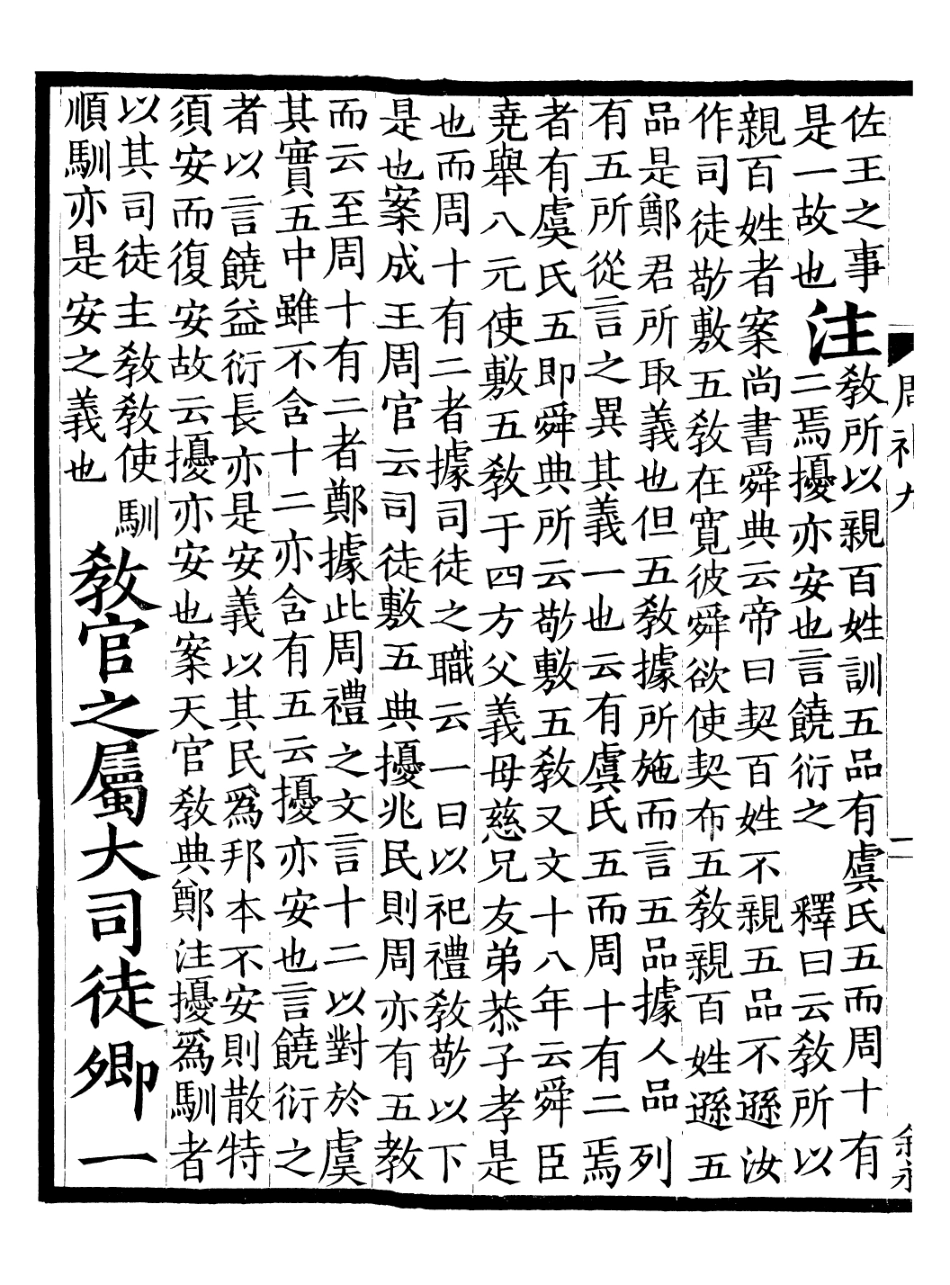 佐王之事
是一故也
注
教所以親百姓訓五品有虞氏五而周十有
二焉擾亦安也言饒衍之　釋曰云教所以
親百姓者案尚書舜典云帝曰契百姓不親五品不遜汝
作司徒敬敷五教在寬彼舜欲使契布五教親百姓遜五
品是鄭君所取義也但五教據所施而言五品據人品列
有五所從言之異其義一也云有虞氏五而周十有二焉
者有虞氏五即舜典所云敬敷五教又文十八年云舜臣
堯舉八元使敷五教于四方父義母慈兄友弟恭子孝是
也而周十有二者據司徒之職云一曰以祀禮教敬以下
是也案成王周官云司徒敷五典擾兆民則周亦有五教
而云至周十有二者鄭據此周禮之文言十二以對於虞
其實五中雖不含十二亦含有五云擾亦安也言饒衍之
者以言饒益衍長亦是安義以其民爲邦本不安則散特
須安而復安故云擾亦安也案天官教典鄭注擾爲馴者
以其司徒主教教使馴
順馴亦是安之義也
教官之屬大司徒卿一